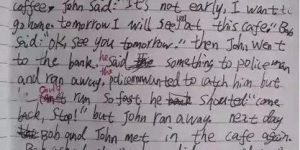 coffee. John said: "It's not early, I want to
go home tomorrow I will see you at this cafe." Bob
said: "OK, see you tomorrow." then John went
to the bank. he said something to policeman
and ran away, the policeman wanted to catch him but
run so fast he shouted "come
back, stop!" but John ran away next day
Bob and John met in the cafe again